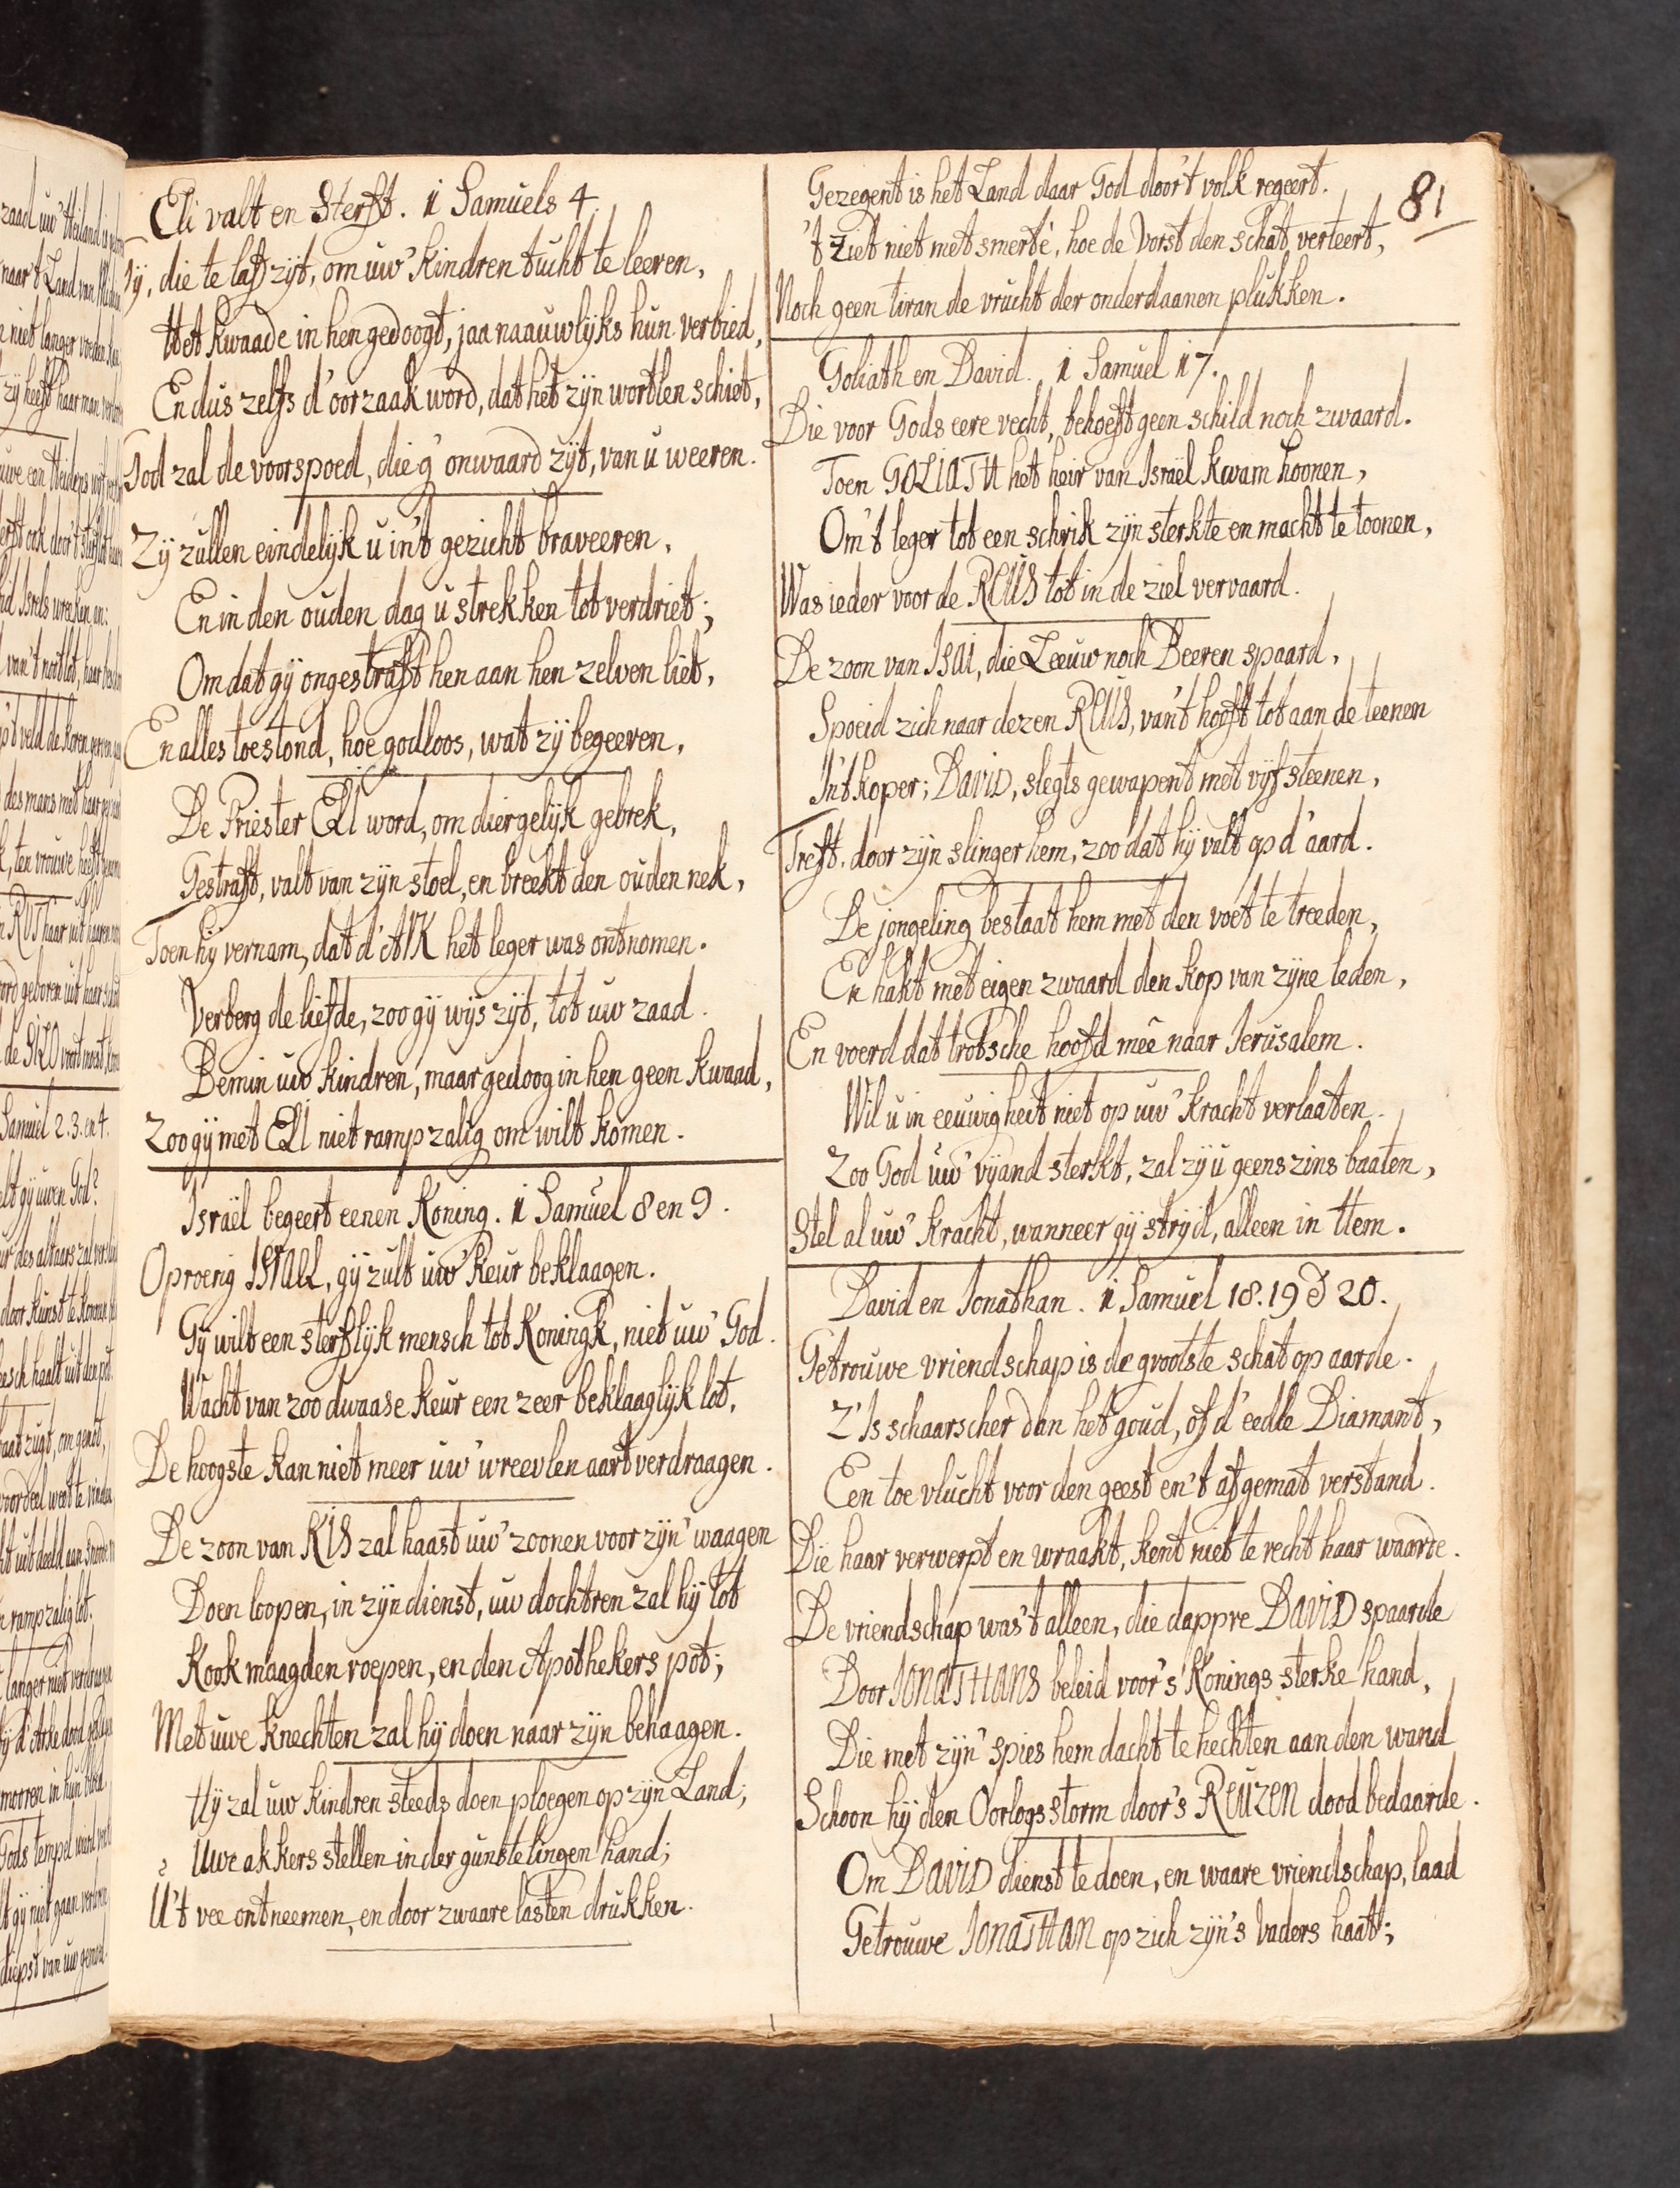 Eli valt en Sterft. 1 Samuels 4.
Gÿ, die te laf zÿt, om uw' Kindren tucht te leeren,
Het kwaade in hen gedoogt, jaa naauwlÿks hun verbied,
En dus zelfs d'oorzaak word, dat het zÿn wortlen schiet,
God zal de voorspoed, die g' onwaard zÿt, van u weeren.
Zÿ zullen eindelÿk u in't gezicht braveeren,
En in den ouden dag u strekken tot verdriet;
Om dat gÿ ongestraft hen aan hen zelven liet,
En alles toestond, hoe godloos, wat zÿ begeeren,
De Priester ELI word, om diergelÿk gebrek,
Gestraft, valt van zÿn stoel, en breekt den ouden nek,
Toen hÿ vernam, dat d'ARK het leger was ontnomen.
Verberg de liefde, zoo gÿ wÿs zÿt, tot uw zaad.
Bemin uw kindren, maar gedoog in hen geen kwaad,
Zoo gÿ met ELI niet rampzalig om wilt komen.
Israël begeert eenen Koning. 1 Samuel 8 en 9.
Oproerig ISRAEL, gÿ zult uw' keur beklaagen.
Gÿ wilt een sterflÿk mensch tot Koningk, niet uw' God.
Wacht van zoo dwaase keur een zeer beklaaglÿk lot,
De hoogste kan niet meer uw' wreevlen aart verdraagen.
De zoon van KIS zal haast uw' zoonen voor zÿn' waagen
Doen loopen, in zÿn dienst, uw dochtren zal hÿ tot
Kook maagden roepen, en den Apothekers pot;
Met uwe knechten zal hÿ doen naar zÿn behaagen.
Hÿ zal uw kindren steeds doen ploegen op zÿn Land;
Uwe akkers stellen in der gunstelingen hand;
U't vee ontneemen, en door zwaare lasten drukken.
81
Gezegent is het Land daar God door't volk regeert.
't Ziet niet met smerte, hoe de Vorst den schat verteert,
Noch geen tiran de vrucht der onderdaanen plukken.
Goliath en David. 1 Samuel 17.
Die voor Gods eere vecht, behoeft geen schild noch zwaard.
Toen GOLIATH het heir van Israël kwam hoonen,
Om't leger tot een schrik zÿn sterkte en macht te toonen,
Was ieder voor de REUS tot in de ziel vervaard.
De zoon van ISAI, die Leeuw noch Beeren spaard,
Spoeid zich naar dezen REUS, van't hooft tot aan de teenen
In't koper; DAVID, slegts gewapent met vÿf steenen,
Treft, door zÿn slinger hem, zoo dat hÿ valt op d'aard.
De jongeling bestaat hem met den voet te treeden,
En hakt met eigen zwaard den kop van zÿne leden,
En voerd dat trotsche hoofd meê naar Ierusalem.
Wil u in eeuwigheit niet op uw' kracht verlaaten.
Zoo God uw' vÿand sterkt, zal zÿ u geenszins baaten,
Stel al uw' kracht, wanneer gÿ strÿd, alleen in Hem.
David en Ionathan. 1 Samuel 18. 19 & 20.
Getrouwe vriendschap is de grootste schat op aarde.
Z'Is schaarscher dan het goud, of d'eedle Diamant,
Een toevlucht voor den geest en't afgemat verstand.
Die haar verwerpt en wraakt, kent niet te recht haar waarde.
De vriendschap was't alleen, die dappre DAVID spaarde
Door IONATHANS beleid voor's Konings sterke hand,
Die met zÿn' spies hem dacht te hechten aan den wand
Schoon hÿ den Oorlogsstorm door's REUZEN dood bedaarde.
Om DAVID dienst te doen, en waare vriendschap, laad
Getrouwe IONATHAN op zich zÿn's Vaders haat;